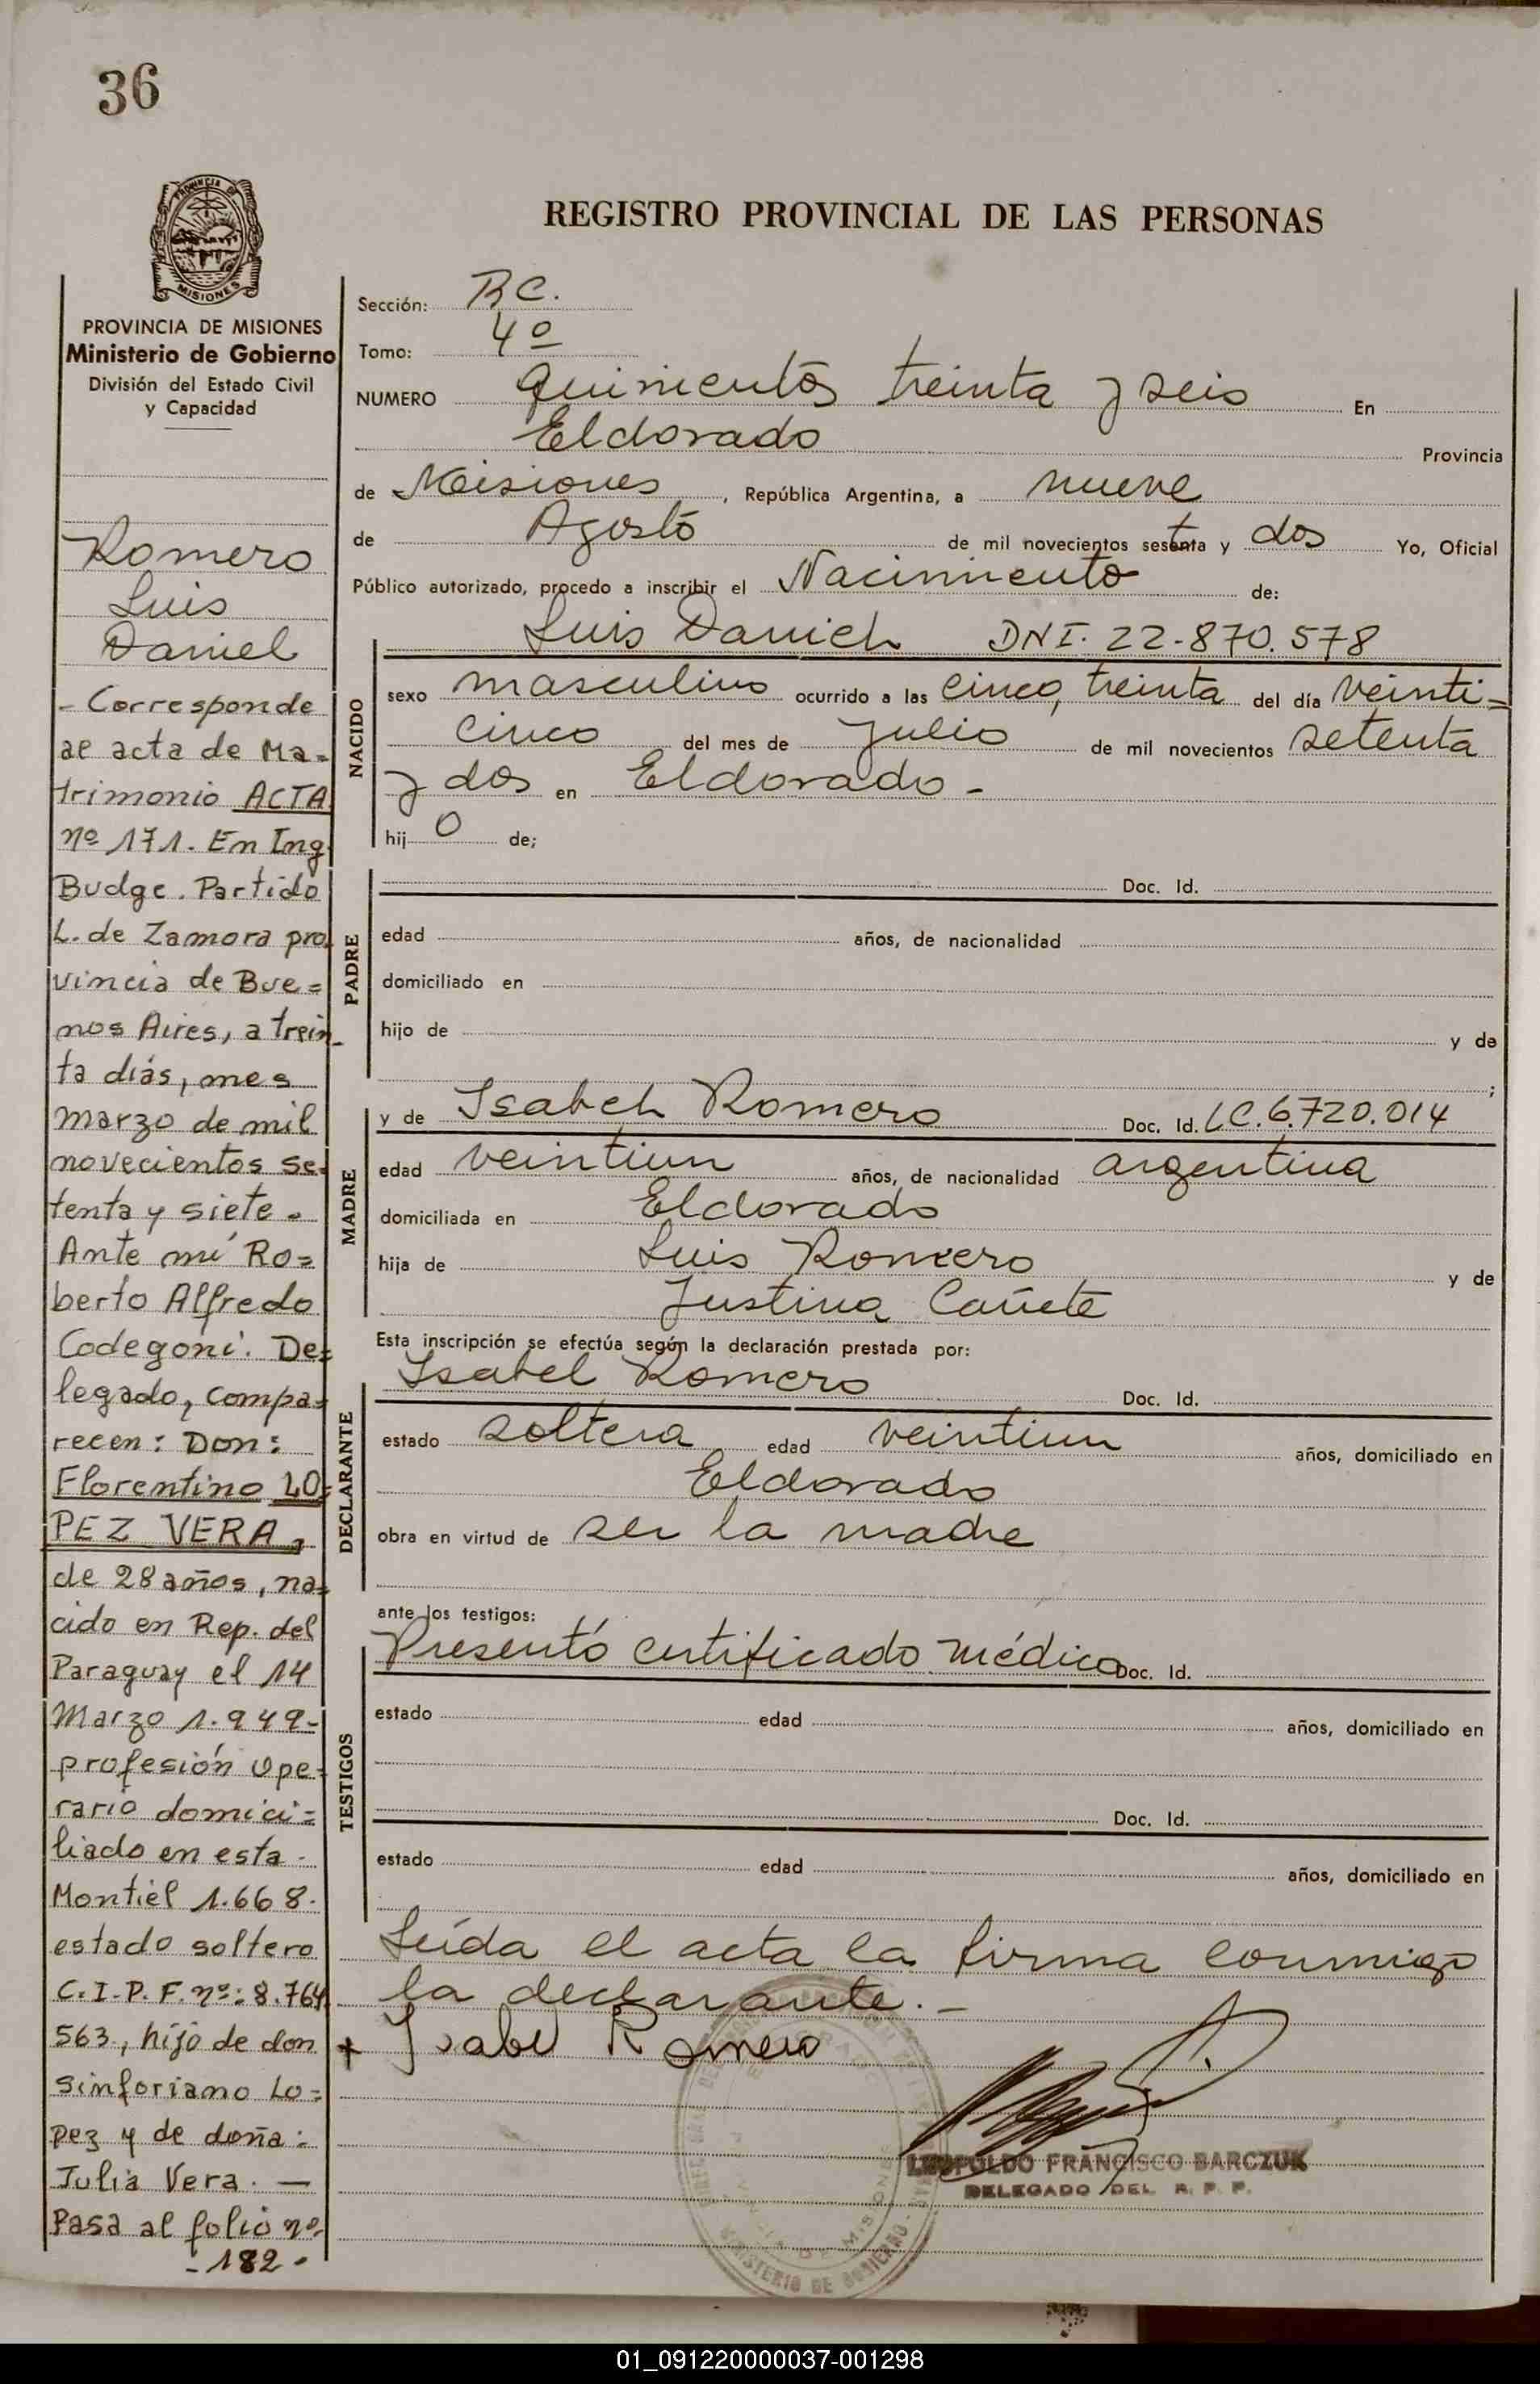 36
REGISTRO PROVINCIAL DE LAS PERSONAS
MISIONES
PROVINCIA DE MISIONES
Ministerio de Gobierno
División del Estado Civil
y Capacidad
Romero
Luis
Daniel
- Corresponde
al acta de Ma=
trimonio ACTA
nº 171. En Ing
Budge. Partido
L. de Zamora pro
vincia de Bue=
nos Aires, a trein
ta diás, mes
marzo de mil
novecientos se=
tenta y siete.
Ante mí Ro=
berto Alfredo
Codegoni. De=
legado, compa=
recen: Don:
Florentino LO=
PEZ VERA,
de 28 años, na=
cido en Rep. del
Paraguay el 14
Marzo 1.949-
profesión ope=
rario domici=
liado en esta -
Montiel 1.668.
estado soltero
C.I.P.F. nº: 8.764
563, hijo de don
Sinforiano Lo=
pez y de doña:
Julia Vera. —
Pasa al folio nº
- 182 -
Sección: RC.
Tomo: 4º
NUMERO quinientos treinta y seis En
Eldorado Provincia
de Misiones, República Argentina, a nueve
de Agosto de mil novecientos setenta y dos Yo, Oficial
Público autorizado, procedo a inscribir el Nacimiento de:
NACIDO
Luis Daniel DNI. 22-870.578
sexo masculino ocurrido a las cinco, treinta del día veinti=
cinco del mes de Julio de mil novecientos setenta
y dos en Eldorado -
hijo de;
PADRE
Doc. Id.
edad años, de nacionalidad
domiciliado en
hijo de y de
;
MADRE
y de Isabel Romero Doc. Id. LC. 6.720.014
edad veintiun años, de nacionalidad argentina
domiciliada en Eldorado
hija de Luis Romero y de
Justina Cañete
Esta inscripción se efectúa según la declaración prestada por:
DECLARANTE
Isabel Romero Doc. Id.
estado soltera edad veintiun años, domiciliado en
Eldorado
obra en virtud de ser la madre
ante los testigos:
TESTIGOS
Presentó certificado médico Doc. Id.
estado edad años, domiciliado en
Doc. Id.
estado edad años, domiciliado en
Leída el acta la firma conmigo
la declarante. -
+ Isabel Romero
LEOPOLDO FRANCISCO BARCZUK
DELEGADO DEL R. P. P.
MINISTERIO DE GOBIERNO
01_091220000037-001298